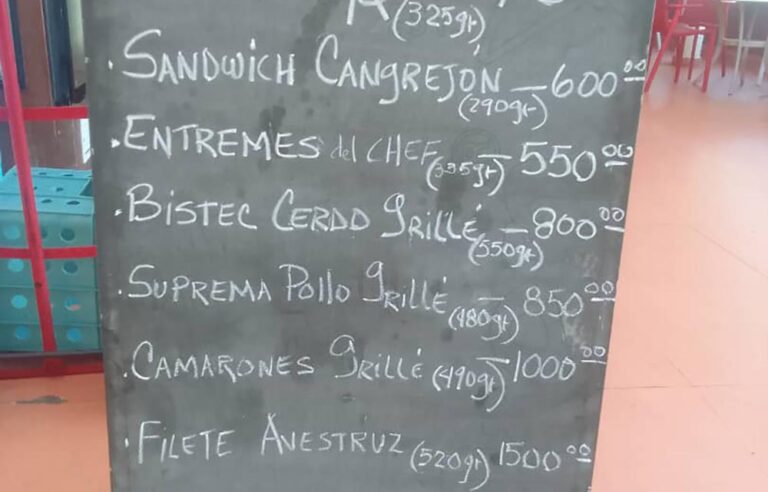 (325gr)
· SANDWICH CANGREJÓN — 600 00
(290gr)
· ENTREMES del CHEF (335gr) — 550 00
· BISTEC CERDO GRILLÉ — 800 00
(550gr)
· SUPREMA POLLO GRILLÉ (480gr) — 850 00
· CAMARONES GRILLÉ (490gr) — 1000 00
· FILETE AVESTRUZ (520gr) 1500 00